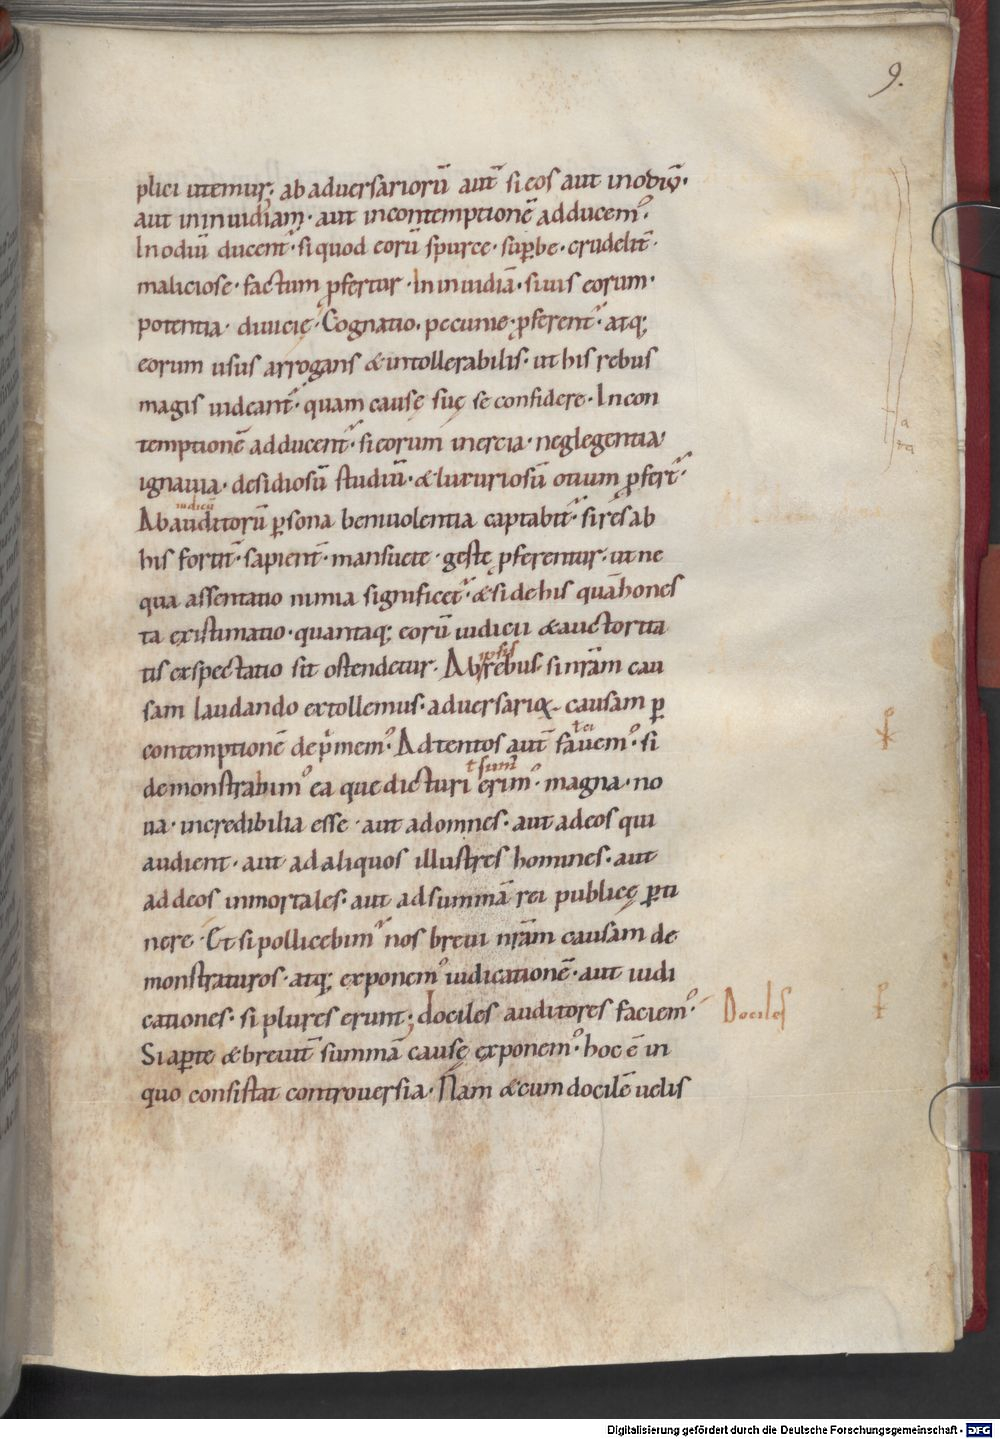 9.
plici utemur. ab adversariorū aut̄ si eos aut in odiū·
aut in inuidiam· aut in contemptionē adducem᷒·
In odiū ducent᷑· si quod eorū spurce· suꝑbe· crudelit̄·
maliciose· factum ꝓfertur· In inuidiā· si uis eorum·
potentia· diuicię· Cognatio· pecunie· ꝓferent᷑· atq;
eorum usus arrogans & intollerabilis· ut his rebus
magis uideant᷑· quam causę suę se confidere· In con
temptionē adducent᷑· si eorum inercia· neglegentia·
ignauia· desidiosū studiū· & luxuriosū otium ꝓfert᷑·
iudicū
Ab auditorū ꝑsona beniuolentia captabit᷑· si res ab
his fortit̄· sapient̄· mansuete· gestę ꝓferentur· ut ne
qua assentatio nimia significet᷑· & si de his quā hones
ta existimatio· quantaq; eorū iudicii & auctorita
tis exspectatio sit ostendetur· Ab rebus· si nr̄am cau
ipsis
sam laudando extollemus· aduersarioꝝ causam ꝑ
contemptionē deprimem᷒· Adtentos aut̄ fauem᷒· si
ł ei
demonstrabim᷒ ea que dicturi erim᷒· magna· no
ł sum᷒
ua· incredibilia esse· aut ad omnes· aut ad eos qui
audient· aut ad aliquos illustres homines· aut
ad deos inmortales· aut ad summā rei publicę ꝑti
nere· Et si pollicebim᷑ nos breui nr̄am causam de
monstraturos· atq; exponem᷒ iudicationē· aut iudi
cationes· si plures erunt; dociles auditores faciem᷒·
Dociles
Si aꝑte & breuit̄ summā causę exponem᷒· hoc ē in
quo consistat controuersia· Nam & cum docilē uelis
Digitalisierung gefördert durch die Deutsche Forschungsgemeinschaft - DFG